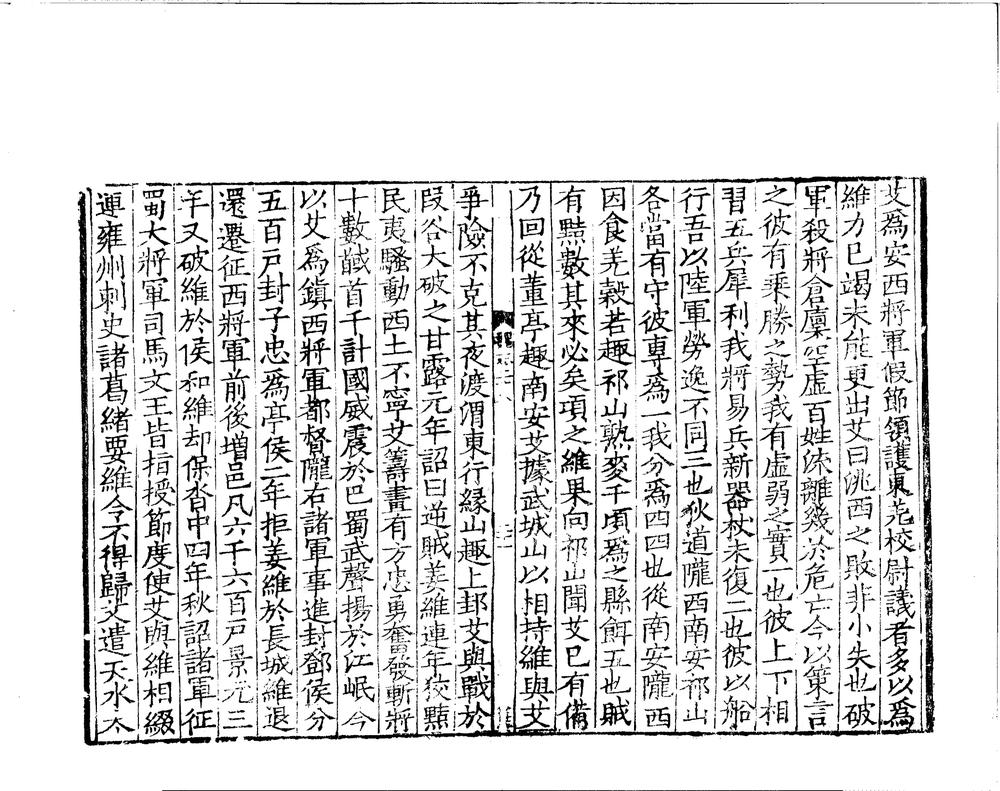 艾爲安西將軍假節領護東羌校尉議者多以爲
維力已竭未能更出艾曰洮西之敗非小失也破
軍殺將倉廩空虛百姓流離幾於危亡今以策言
之彼有乘勝之勢我有虛弱之實一也彼上下相
習五兵犀利我將易兵新器杖未復二也彼以船
行吾以陸軍勞逸不同三也狄道隴西南安祁山
各當有守彼專爲一我分爲四四也從南安隴西
因食羌穀若趣祁山熟麥千頃爲之縣餌五也賊
有黠數其來必矣頃之維果向祁山聞艾已有備
乃回從董亭趣南安艾據武城山以相持維與艾
爭險不克其夜渡渭東行緣山趣上邽艾與戰於
段谷大破之甘露元年詔曰逆賊姜維連年狡黠
民夷騷動西土不寧艾籌畫有方忠勇奮發斬將
十數馘首千計國威震於巴蜀武聲揚於江岷今
以艾爲鎮西將軍都督隴右諸軍事進封鄧侯分
五百戸封子忠爲亭侯二年拒姜維於長城維退
還遷征西將軍前後增邑凡六千六百戸景元三
年又破維於侯和維却保沓中四年秋詔諸軍征
蜀大將軍司馬文王皆指授節度使艾與維相綴
連雍州刺史諸葛緒要維令不得歸艾遣天水太